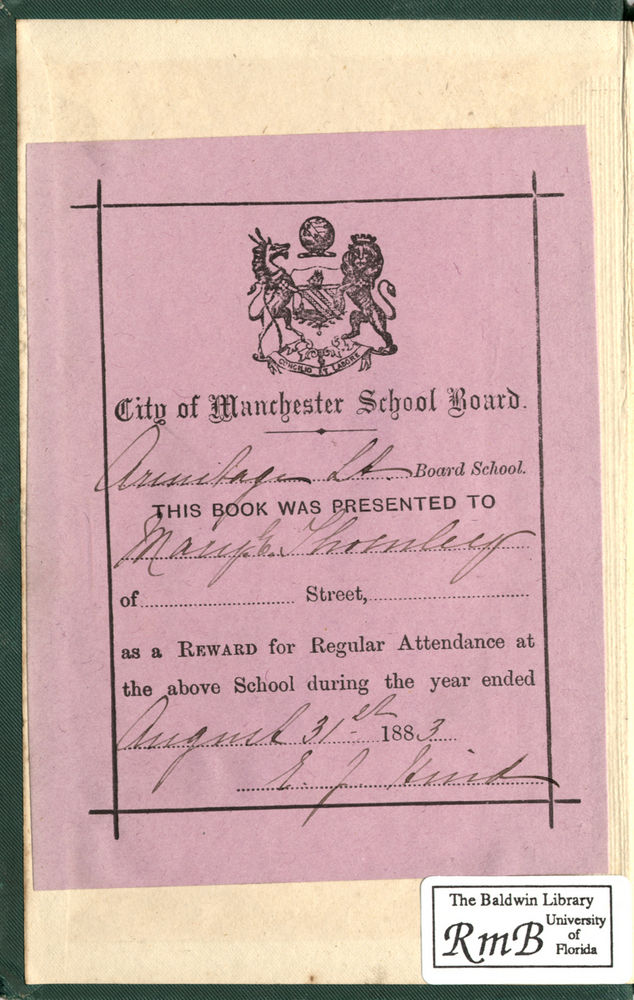 CONCILIO ET LABORE
City of Manchester School Board.
Armitage St. Board School.
THIS BOOK WAS PRESENTED TO
Mary E. Thornley
of Street,
as a REWARD for Regular Attendance at
the above School during the year ended
August 31st 1883
E. J. Hind
The Baldwin Library
RmB University
of
Florida